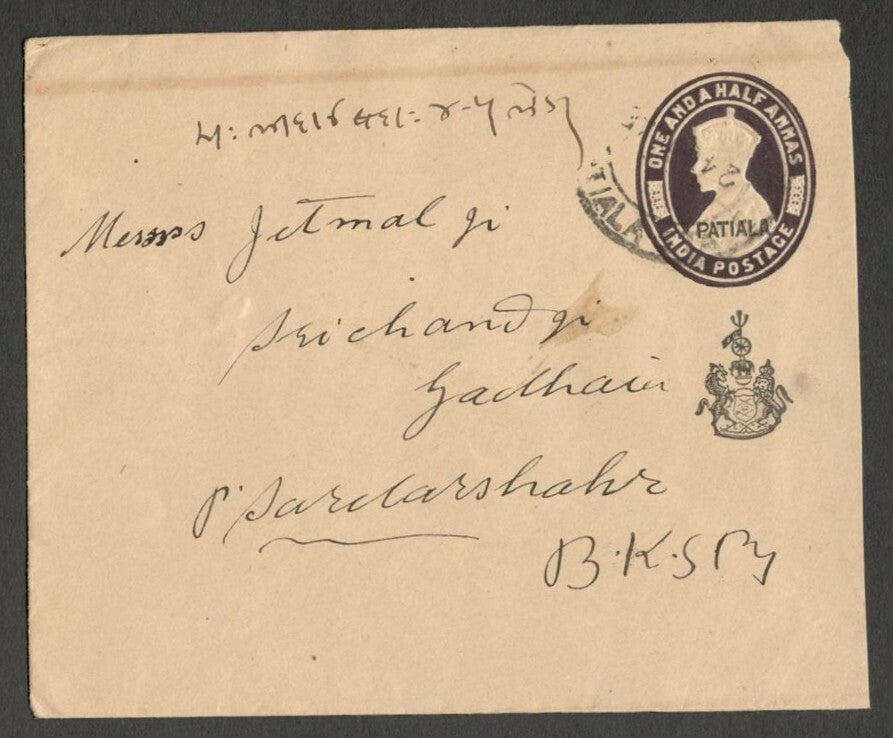 ONE AND A HALF ANNAS
PATIALA
INDIA POSTAGE
TIALA
Messrs Jetmal ji
Srichand ji
Gadhaia
P. Sardarshahr
B.K.S Ry